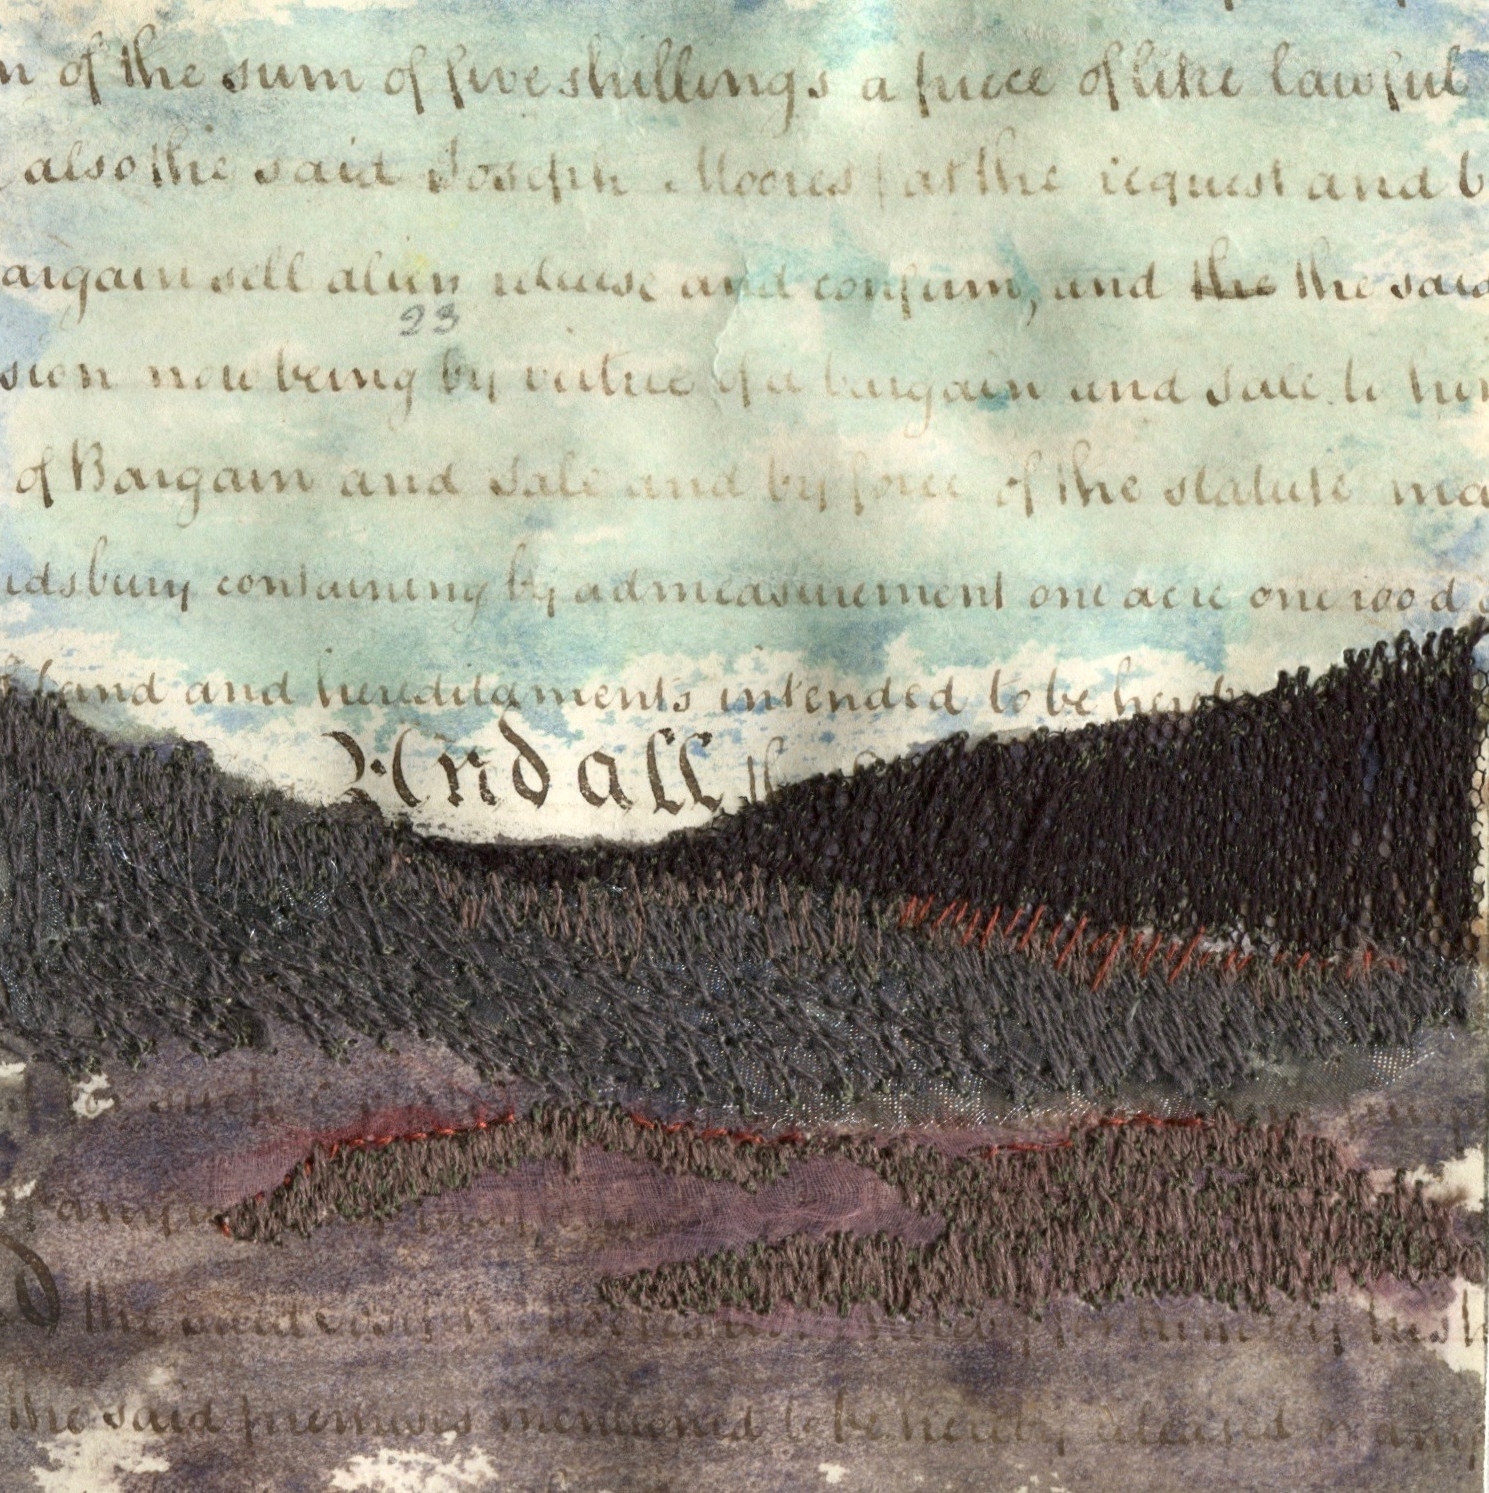 of the sum of five shillings a piece of like lawful
also the said Joseph Moores at the request and b
argain sell alien release and confirm, and the the said
23
sion now being by virtue of a bargain and sale to him
of Bargain and Sale and by force of the statute ma
idsbury containing by admeasurement one acre one rood
land and hereditaments intended to be hereby
And all
to such
the
the said premises mentioned to be hereby released or any